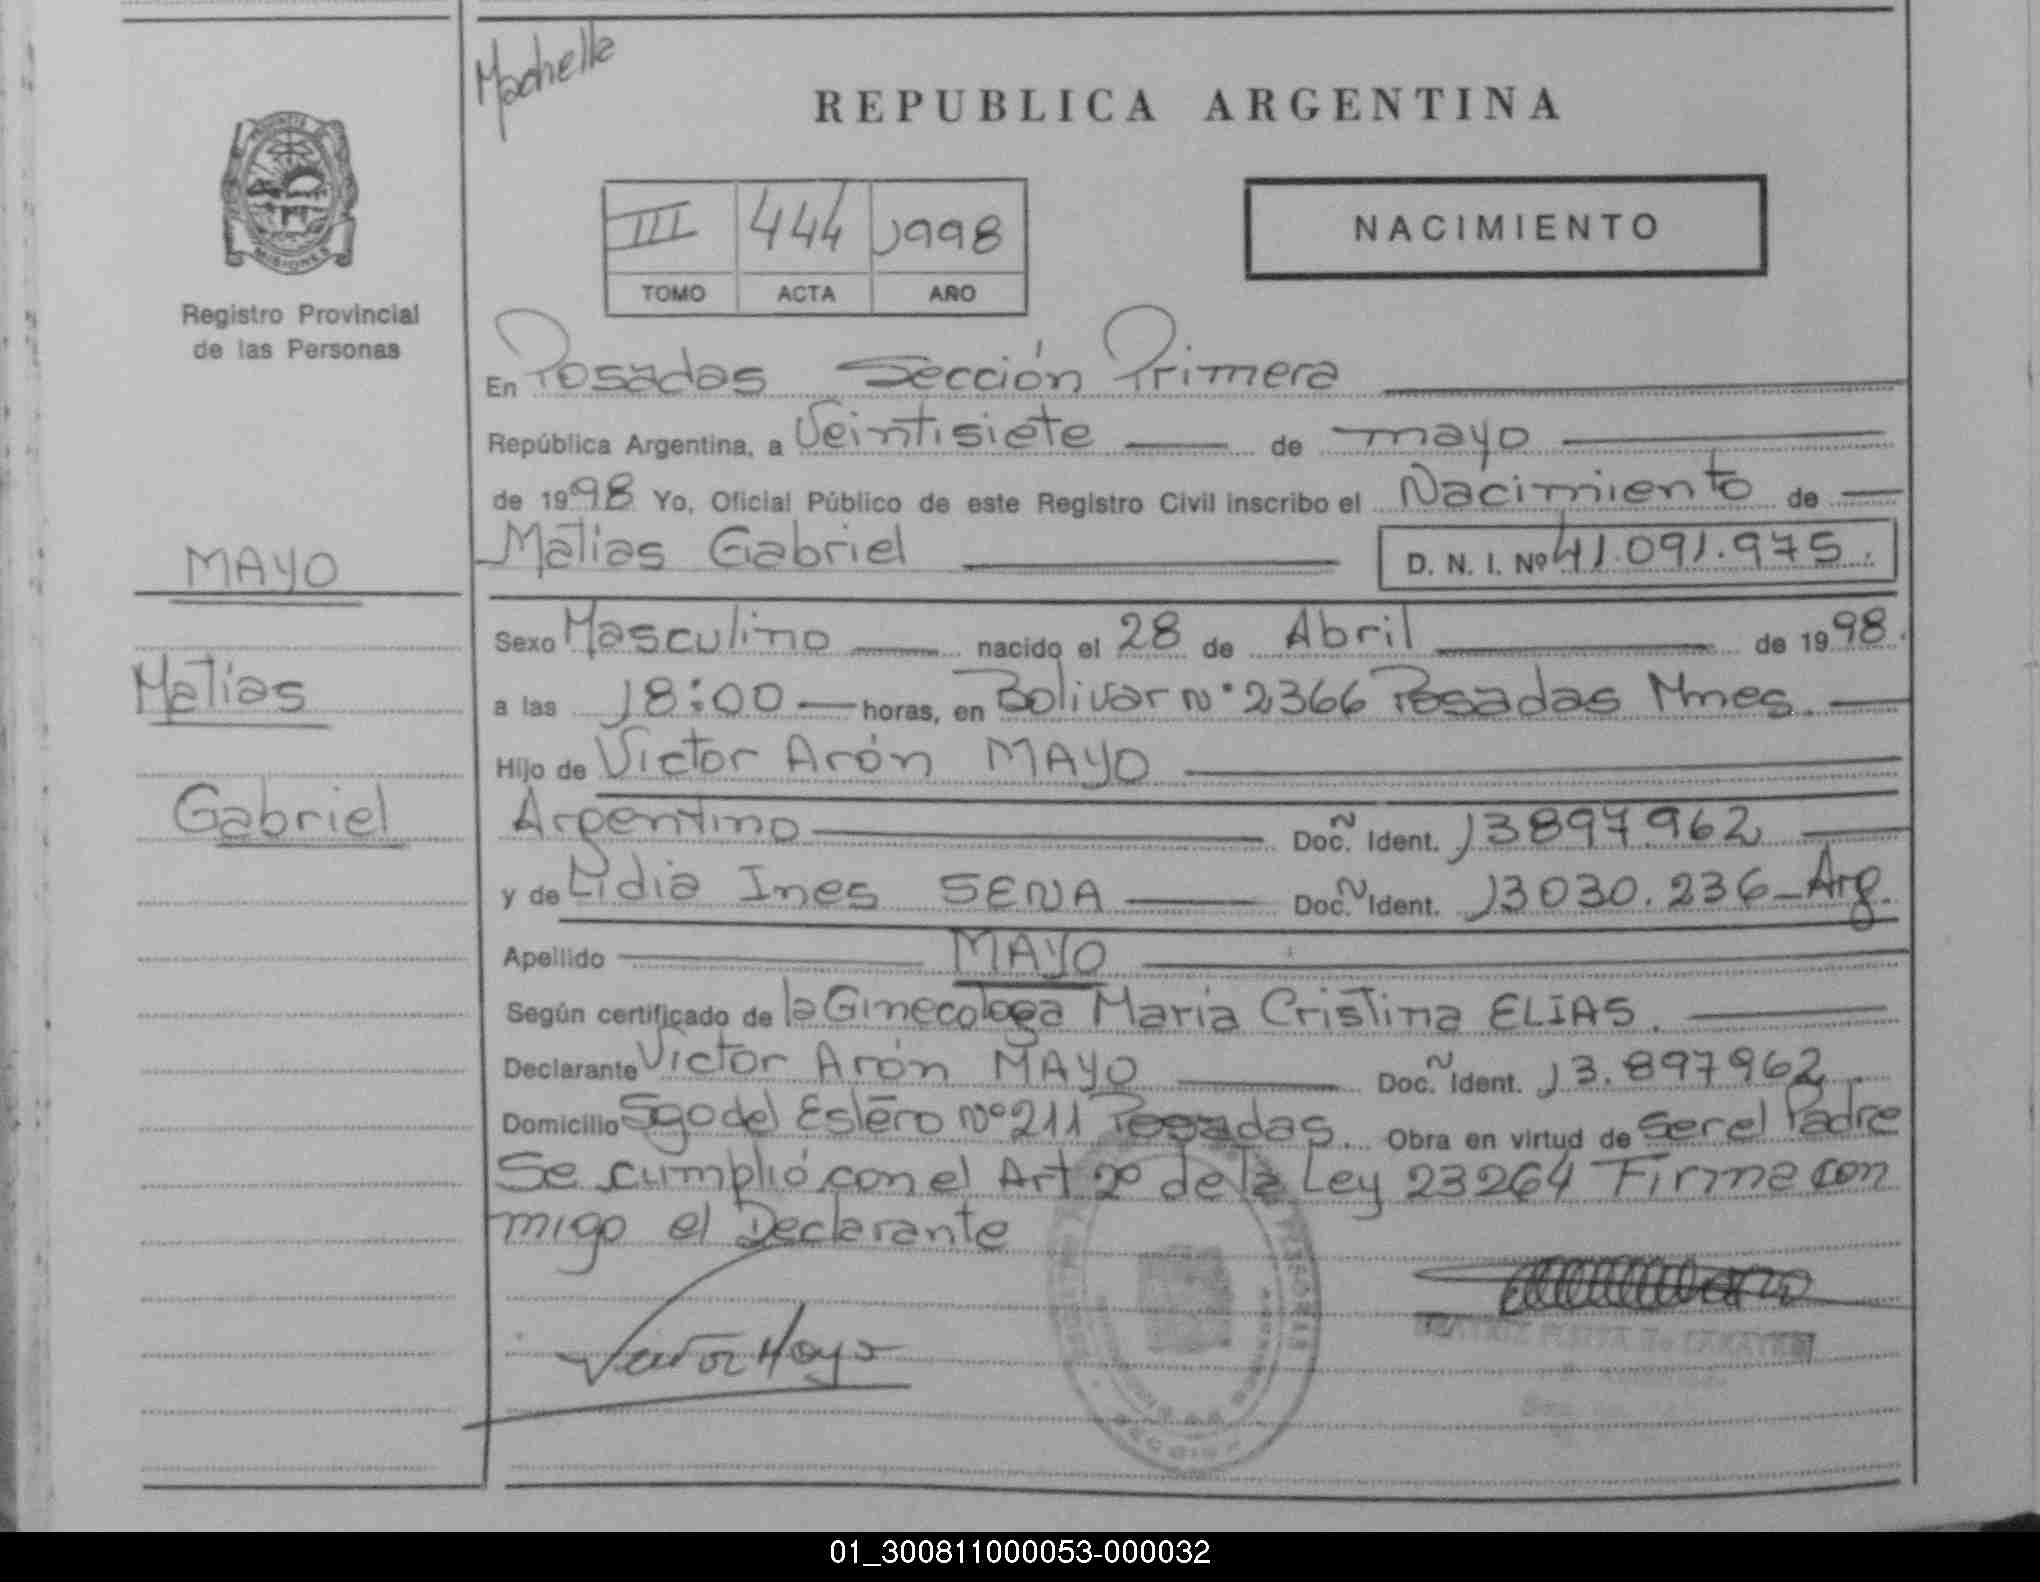 Machella
REPUBLICA ARGENTINA
MISIONES
III 444 1998
TOMO ACTA AÑO
NACIMIENTO
Registro Provincial
de las Personas
MAYO
Matías
Gabriel
En Posadas Sección Primera
República Argentina, a Veintisiete de mayo
de 1998 Yo, Oficial Público de este Registro Civil inscribo el Nacimiento de
Matias Gabriel D. N. I. Nº 41.091.975.
Sexo Masculino nacido el 28 de Abril de 1998.
a las 18:00 horas, en Bolivar Nº 2366 Posadas Mnes.
Hijo de Victor Arón MAYO
Argentino Doc. Ident. 13897962
y de Lidia Ines SENA Doc. Ident. 13030.236 - Arg.
Apellido MAYO
Según certificado de la Ginecologa María Cristina ELIAS.
Declarante Victor Arón MAYO Doc. Ident. 13.897962
Domicilio Sgo del Estero Nº 211 Posadas. Obra en virtud de Ser el Padre
Se cumplió con el Art 2º de la Ley 23264 Firma con
migo el Declarante
01_300811000053-000032